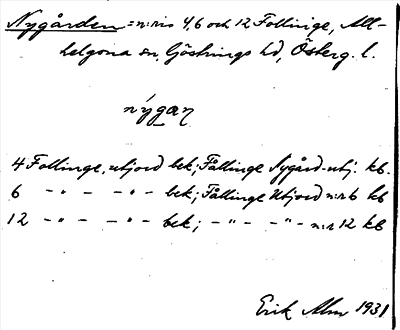 Nygården = n:ris 4,6 och 12 Follinge, All-
helgona sn, Göstrings hd, Österg. l.
nýgaɳ
4 Follinge, utjord bek; Fållinge Nygård-utj. kb.
6 -"- -"- bek; Fållinge Utjord n:r 6 kb
12 -"- -"- bek; -"- -"- n:r 12 kb
Erik Alm 1931